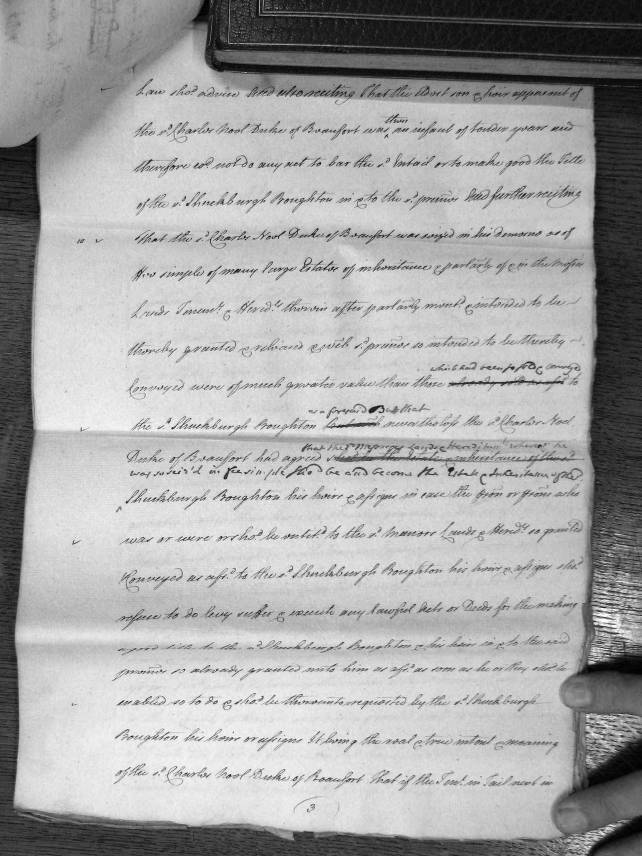 Law sho.d advise And also reciting That the eldest son & heir apparent of
then
the s.d Charles Noel Duke of Beaufort was an infant of tender years and
therefore co.d not do any act to bar the s.d Entail or to make good the Title
of the s.d Shuckburgh Boughton in & to the s.d prem̃es And further reciting
That the s.d Charles Noel Duke of Beaufort was seized in his demesne as of
Fee simple of many large Estates of inheritance & partic̃arly of & in the
Lands Tenem.ts & Hered.ts therein after partic̃arly ment.d & intended to be
thereby granted & released & w.ch s.d prem̃es so intended to be thereby
which had been so sold & conveyed
Conveyed were of much greater value than those already sold as afs.d to
as aforesaid But that
the s.d Shuckburgh Boughton nevertheless the s.d Charles Noel
that the s.d Mannors Lands & Hered.ts whereof he
Duke of Beaufort had agreed inheritance of the s.d
was so seiz'd in fee simple sho.d be and become the Estate & Inheritance of the s.d
Shuckburgh Boughton his heirs & assigns in case the p̃son or p̃sons who
was or were or sho.d be entit.d to the s.d Manors Lands & Hered.ts so granted
Conveyed as afs.d to the s.d Shuckburgh Boughton his heirs & assigns sho.d
refuse to do levy suffer & execute any lawful Acts or Deeds for the making
a good title to the s.d Shuckburgh Boughton & his heirs in & to the said
prem̃es so already granted unto him as afs.d as soon as he or they sho.d be
enabled so to do & sho.d be thereunto requested by the s.d Shuckburgh
Boughton his heirs or assigns It being the real & true intent & meaning
of the s.d Charles Noel Duke of Beaufort That if the Ten.t in Tail next in
3